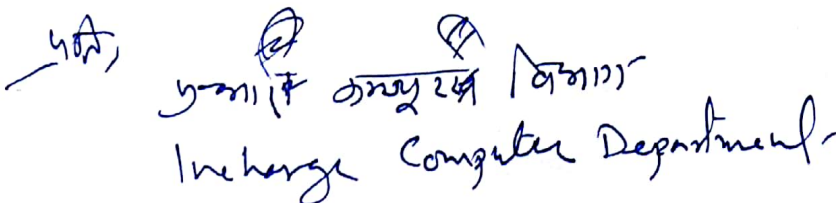 प्रति,
प्रभारी कम्प्यूटर विभाग
Incharge Computer Department.